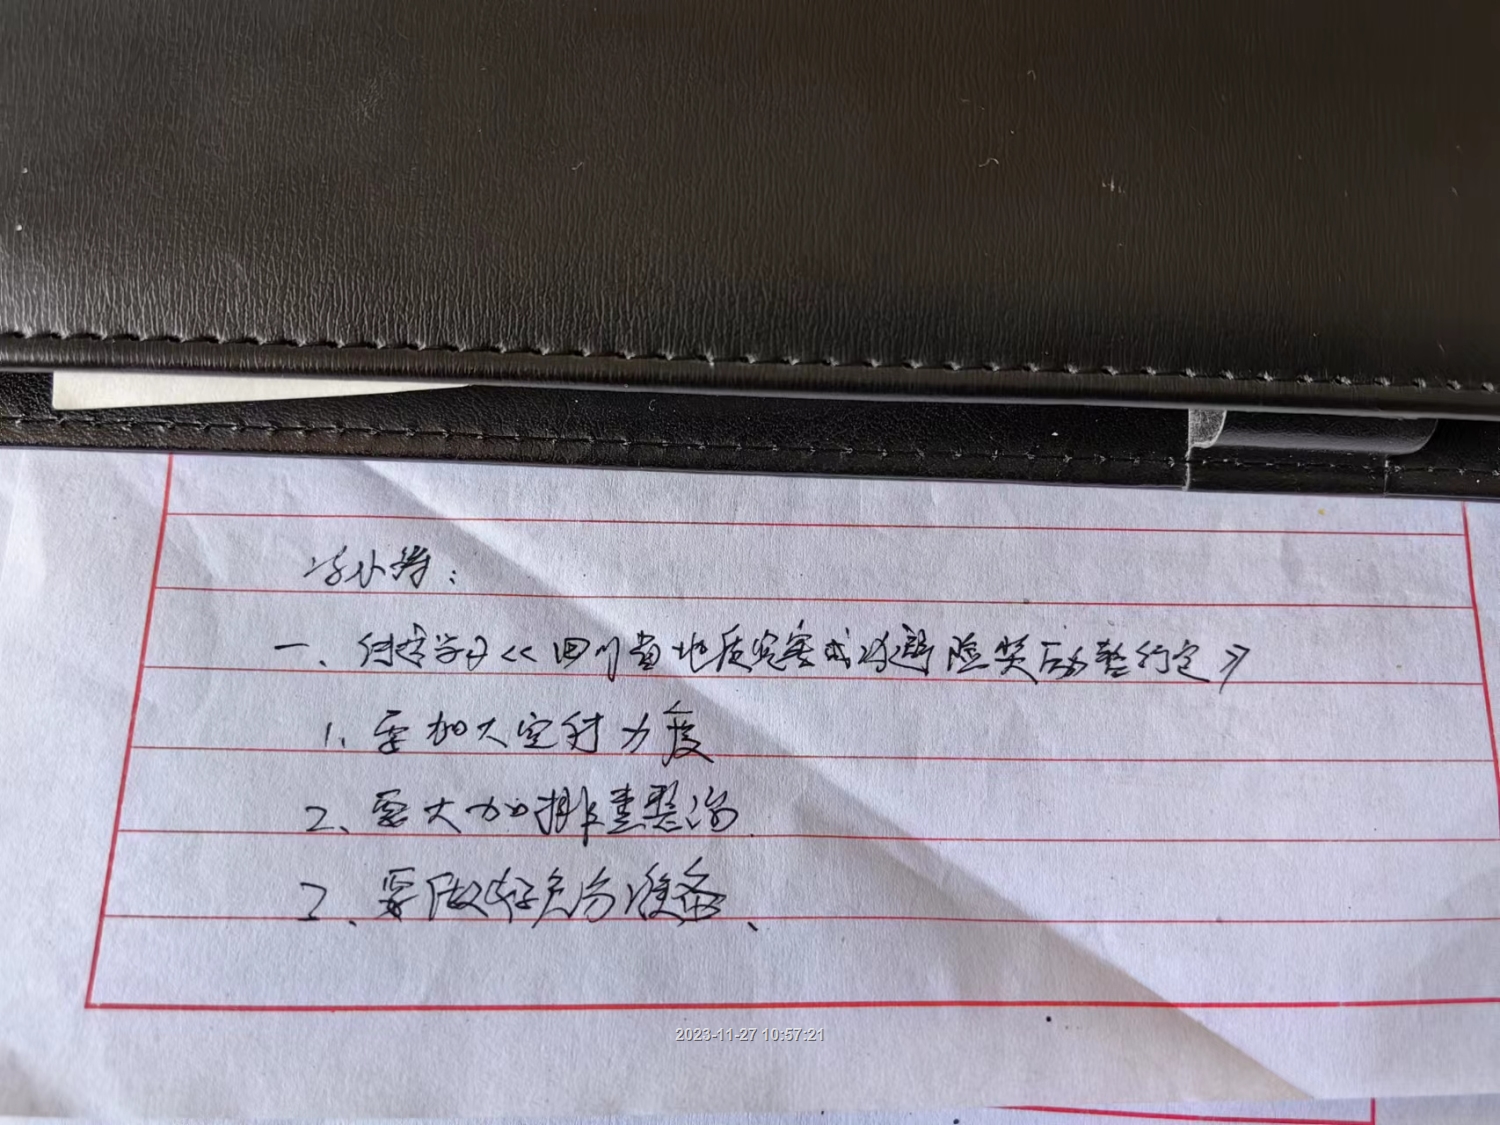 冯小涛:
一、传达学习《四川省地质灾害成功避险奖励暂行定》
1、要加大宣传力度
2、要大力加排查整治
3、要做好充分准备、
2023-11-27 10:57:21